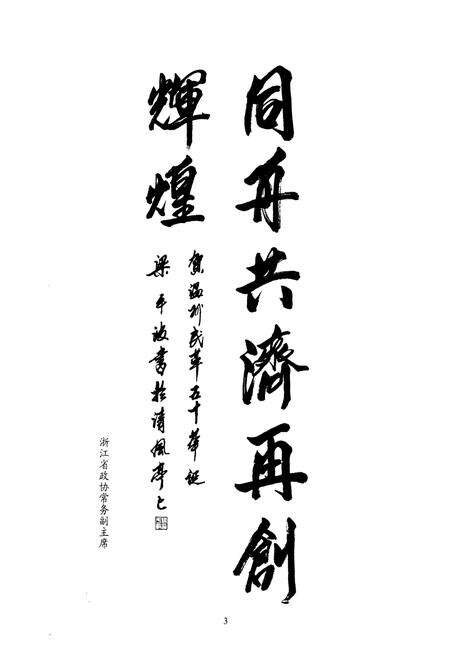 同舟共濟再創
輝煌
賀温州民革五十華誕
梁平波書於清風亭
浙江省政协常务副主席
3